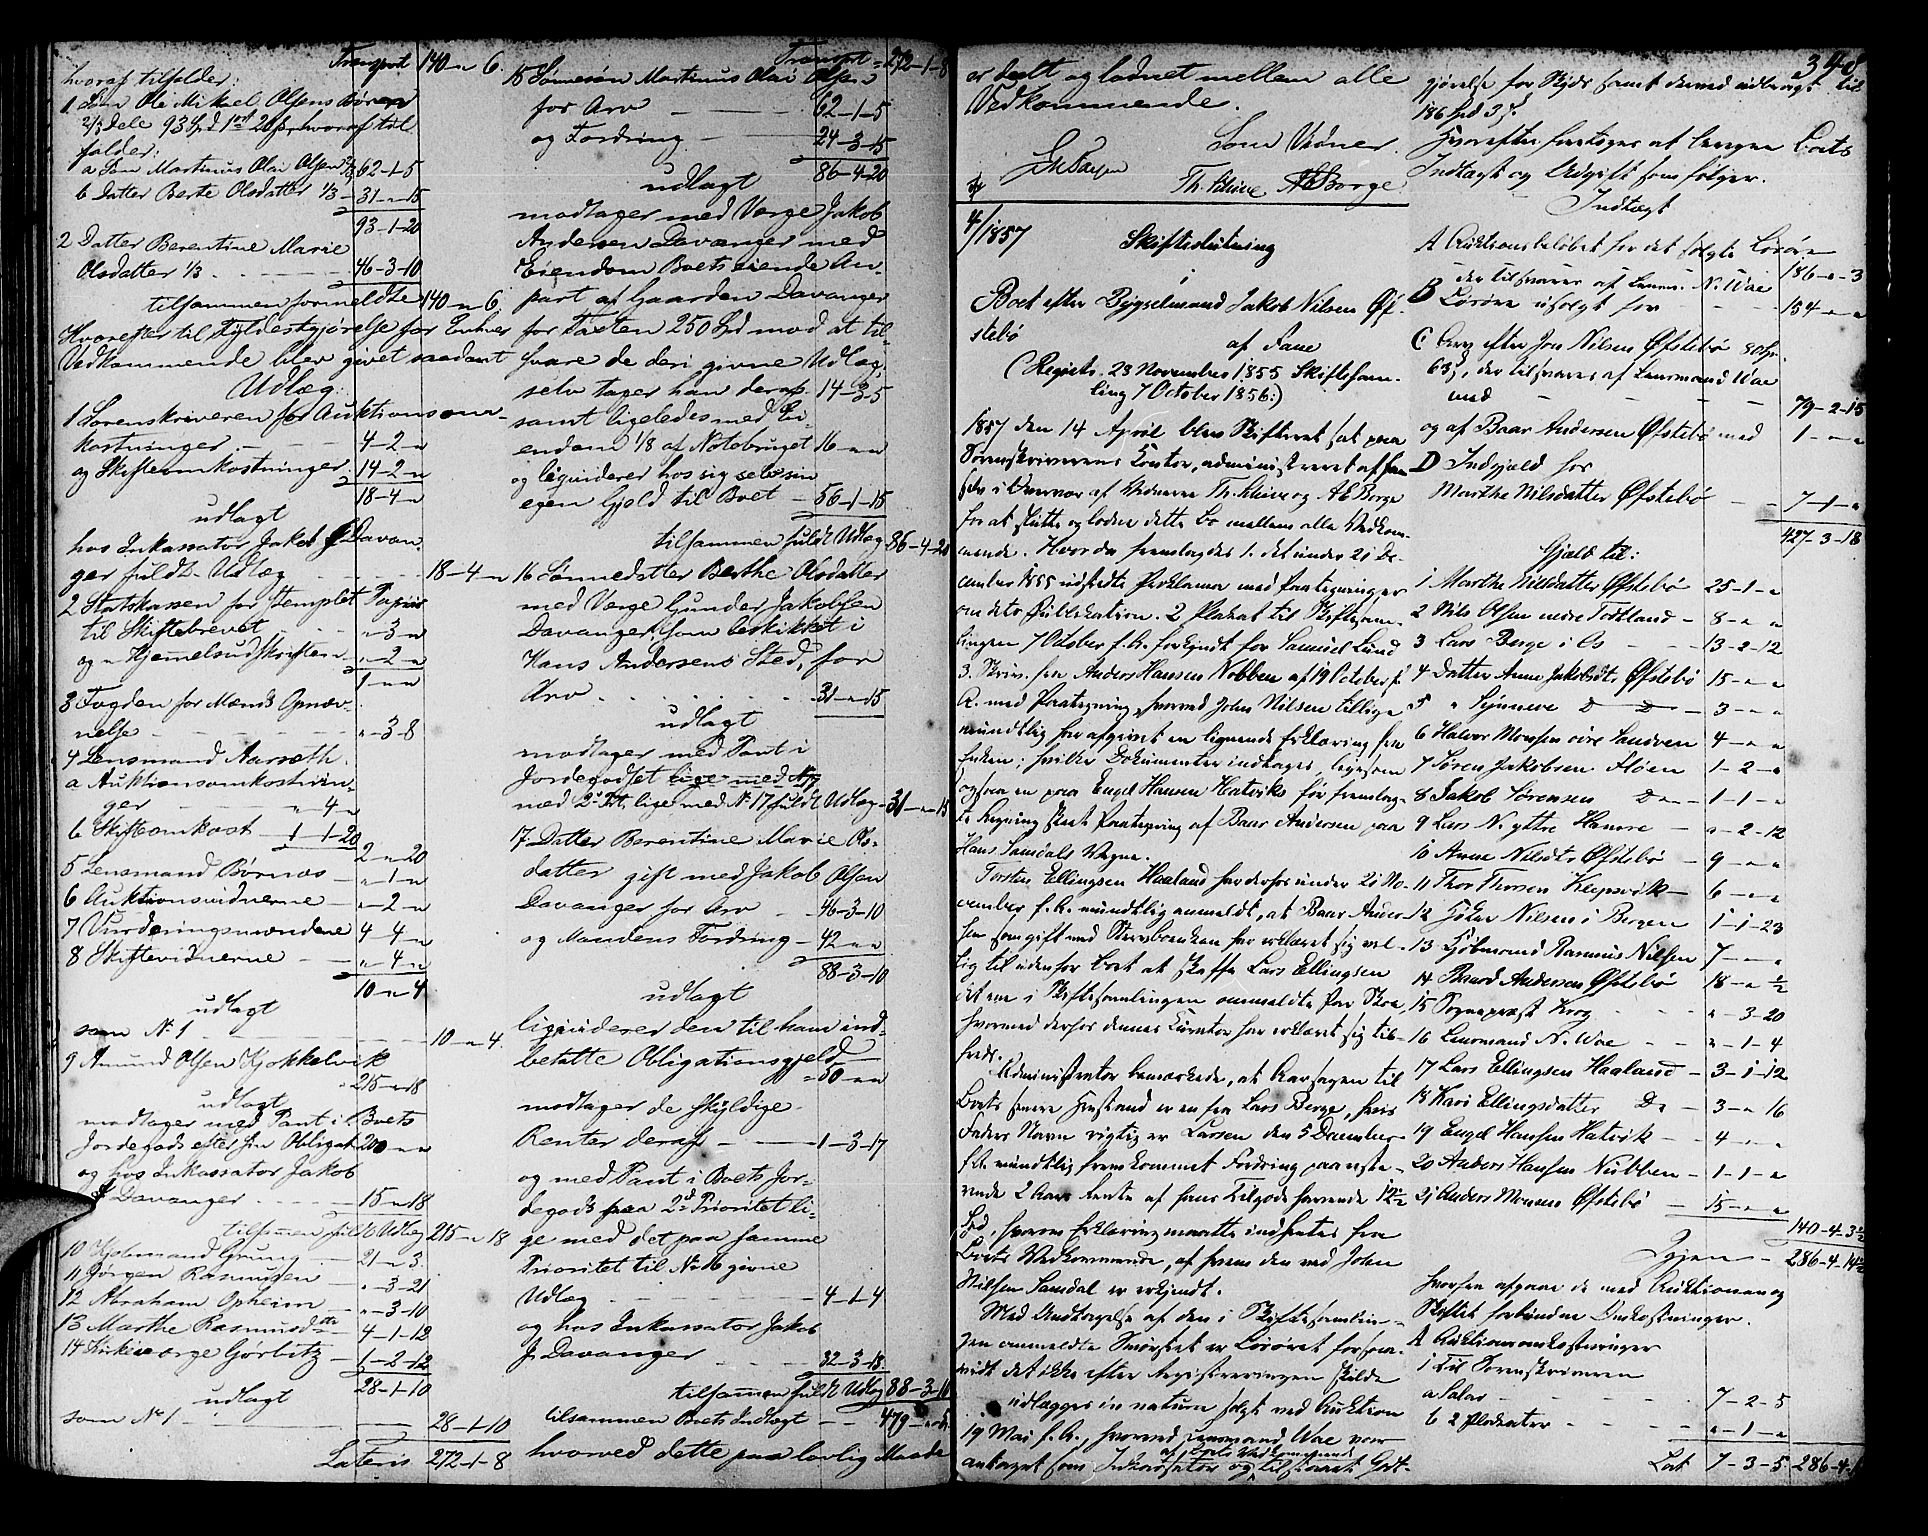 Transport 140 - " 6.
hvoraf tilfalder:
1 Søn Ole Mikael Olsens Børn
2/3 Dele 93 Spd 1 ort 20 s, hvoraf til
falder:
a Søn Martinus Olai Olsen 2/3 62-1-5
b Datter Berte Olsdatter 1/3 - 31-"-15
93-1-20
2 Datter Berentine Marie
Olsdatter 1/3 - 46-3-10
tilsammen formeldte 140 - " 6.
Hvorefter til Fyldestgjørelse for Enhver
Vedkommende blev givet saadant
Udlæg:
1 Sorenskriveren for Auktionsom-
kostninger - 4-2-"
og Skifteomkostninger 14-2-"
18-4-"
udlagt
hos Inkassator Jakob J. Davan-
ger fuldt Udlæg - 18-4-"
2 Statskassen for stemplet Papiir
til Skiftebrevet - "-3-"
og " Hjemmelsudskriften - "-2-"
1-"-"
3 Fogden for Mænds Opnæv-
nelse - "-3-8
4 Lensmand Aarseth
a Auktionsomkostnin-
ger - "-4-"
b Skifteomkost - 1-1-20
2-"-20
5 Lensmand Børnæs - "-1-"
6 Auktionsvidnerne - "-2-"
7 Vurderingsmændene 4-4-"
8 Skiftevidnerne - "-4-"
10-"-4
udlagt
som No 1 - 10-"-4.
9 Amund Olsen Kjøkkelvik
215-"-18
udlagt
modtager med Pant i Boets
Jordegods efter sin Obligat. 200-"-"
og hos Inkassator Jakob
J. Davanger - 15-"-18
tilsammen fuldt Udlæg 215-"-18
10 Kjøbmand Grung - 21-"-3.
11 Jørgen Rasmussen - "-3-21
12 Abraham Opheim - "-3-10
13 Marthe Rasmusdtr 4-1-12
14 Kirkeværge Görbitz - 1-2-12
28-1-10
udlagt
som No 1 - 28-1-10
Lateris 272-1-8
Transport = 272-1-8
15 Sønnesøn Martinus Olai Olsen
for Arv - 62-1-5
og Fordring - 24-3-15
86-4-20
udlagt
modtager med Værge Jakob
Andersen Davanger med
Eiendom Boets eiende An-
part af Gaarden Davanger
for Taxten 250 Spd mod at til-
svare de deri givne Udlæg,
selv tager han deraf 14-3-5
samt ligeledes med Ei-
endom 1/8 af Notebruget 16-"-"
og liqviderer hos sig selv sin
egen Gjeld til Boet - 56-1-15
tilsammen fuldt Udlæg 86-4-20
16 Sønnedatter Berthe Olsdatter
med Værge Gunder Jakobsen
Davanger, som beskikket i
Hans Andersens Sted, for
Arv - 31-"-15
udlagt
modtager med Pant i
Jordegodset lige med No
med 2d Pr. lige med No 17 fuldt Udlæg - 31-"-15
17 Datter Berentine Marie Ols-
datter gift med Jakob Olsen
Davanger for Arv - 46-3-10
og Mandens Fordring - 42-"-"
88-3-10
udlagt
liqviderer den til ham ind-
betalte Obligationsgjeld
- 50-"-"
modtager de skyldige
Renter deraf - 1-3-17
og med Pant i Boets Jor-
degods paa 2d Prioritet li-
ge med det paa samme
Prioritet til No 16 givne
Udlæg - 4-1-4
og hos Inkassator Jakob
J. Davanger - 32-3-13
tilsammen fuldt Udlæg 88-3-10
tilsammen Boets Indtægt - 479-
hvorved dette paa lovlig Maade
er deelt og lodnet mellem alle
Vedkommende.
Som Vidner.
Th. Schiive AB Borge
4/1857
Skifteslutning
i
Boet efter Bygselmand Jakob Nilsen Øf-
stebø
af Fane
(Registr. 23 November 1855 Skiftesam-
ling 7 October 1856:)
1857 den 14 April blev Skifteret sat paa
Sorenskriverens Kontor, administreret af sam-
me i Overvær af Vidnerne Th. Schiive og Ab Borge
for at slutte og lodne dette Bo mellem alle Vedkom-
mende. Hvorda fremlagdes 1. det under 21 De-
cember 1855 udstedte Proklama med Paategninger
om dets Publikation. 2 Plakat til Skiftesam-
lingen 7 October f.A. forkyndt for Samuel Lund
3. Skriv. fra Anders Hansen Nobben af 19 October f.
A. med Paategning, hvorved John Nilsen tillige
mundtlig har afgivet en lignende Erklæring fra
Enken; hvilke Dokumenter indtages, ligesom
ogsaa en paa Engel Hansen Hatviks før fremlag-
te Regning skeet Paategning af Baar Andersen paa
Hans Samdals Vegne.
Torsten Ellingsen Haaland har derfor under 21 No-
vember f.A. mundtlig anmeldt, at Baar Ander-
sen som gift med Sterbboenken har erklæret sig vil-
lig til udenfor Boet at skaffe Lars Ellingsen
det ene i Skiftesamlingen anmeldte Par Skoe
hvormed derfor dennes Kurator har erklæret sig til-
freds.
Administrator bemærkede, at Aarsagen til
Boets senere Henstand er en fra Lars Berge, hvis
Faders Navn rigtig er Larsen den 5 December
f.A. mundtlig fremkommet Fordring paa reste-
rende 2 Aars Rente af hans Tilgode havende 12 1/2
Spd, hvorom Erklæring maatte indhentes fra
Boets Vedkommende, af hvem den ved John
Nilsen Samdal er erkjendt.
Med Undtagelse af den i Skiftesamlin-
gen anmeldte Smørset er Løsøret forsaa-
vidt det ikke efter Registreringen skulde
udlægges in natura solgt ved Auktion
19 Mai f.A., hvorved Lensmand Wae var
antaget som Inkassator og af Boets Vedkommende tilstaaet Godt-
348
gjørelse for Skyds samt dermed udbragt til
186 Spd 3 s.
Hvorefter foretoges at beregne Boets
Indtægt og Udgift som følger.
Indtægt
A Auktionsbeløbet for det solgte Løsøre
der tilsvares af Lensm. N. Wae 186-"-3
B Løsøre usolgt for - 154-"-"
C Arv efter Jon Nilsen Øfstebø 80 Spd.
63 s, der tilsvares af Lensmand Wae
med - 79-2-15
og af Baar Andersen Øfstebø med 1-"-"
D Indgjæld hos
Marthe Nilsdatter Øfstebø - 7-1-"
427-3-18
Gjeld til:
1 Marthe Nilsdatter Øfstebø 25-1-"
2 Nils Olsen nedre Todtland - 8-"-"
3 Lars Berge i Os - 13-2-12
4 Datter Anne Jakobsdtr Øfstebø 15-"-"
5 " Synneve D D - 3-"-"
6 Halvor Monsen øvre Sandven 4-"-"
7 Søren Jakobsen Fløen 1-2-"
8 Jakob Sørensen Do - 1-1-"
9 Lars N. ytre Hamre - "-2-12
10 Anne Nilsdtr Øfstebø - 9-"-"
11 Thor Thorsen Klepsvik - 6-"-"
12 Høker Nilsen i Bergen 1-1-23
13 Kjøbmand Rasmus Nilsen 7-"-"
14 Baard Andersen Øfstebø 18-"-1/2
15 Sogneprest Krog - "-3-20
16 Lensmand N. Wae - "-1-4
17 Lars Ellingsen Haaland - 3-1-12
18 Kari Ellingsdatter Do - 3-"-16
19 Engel Hansen Hatvik - 4-"-"
20 Anders Hansen Nubben - 1-1-"
21 Anders Monsen Øfstebø - 15-"-"
140-4-3 1/2
Igjen - 286-4-14 1/2
hvorfra afgaar de med Auktionen og
Skiftet forbundne Omkostninger.
A Auktionsomkostninger
1 Til Sorenskriveren
a Salær - 7-2-5
b 2 Plakater - "-1-"
Lat 7-3-5 286-4-1